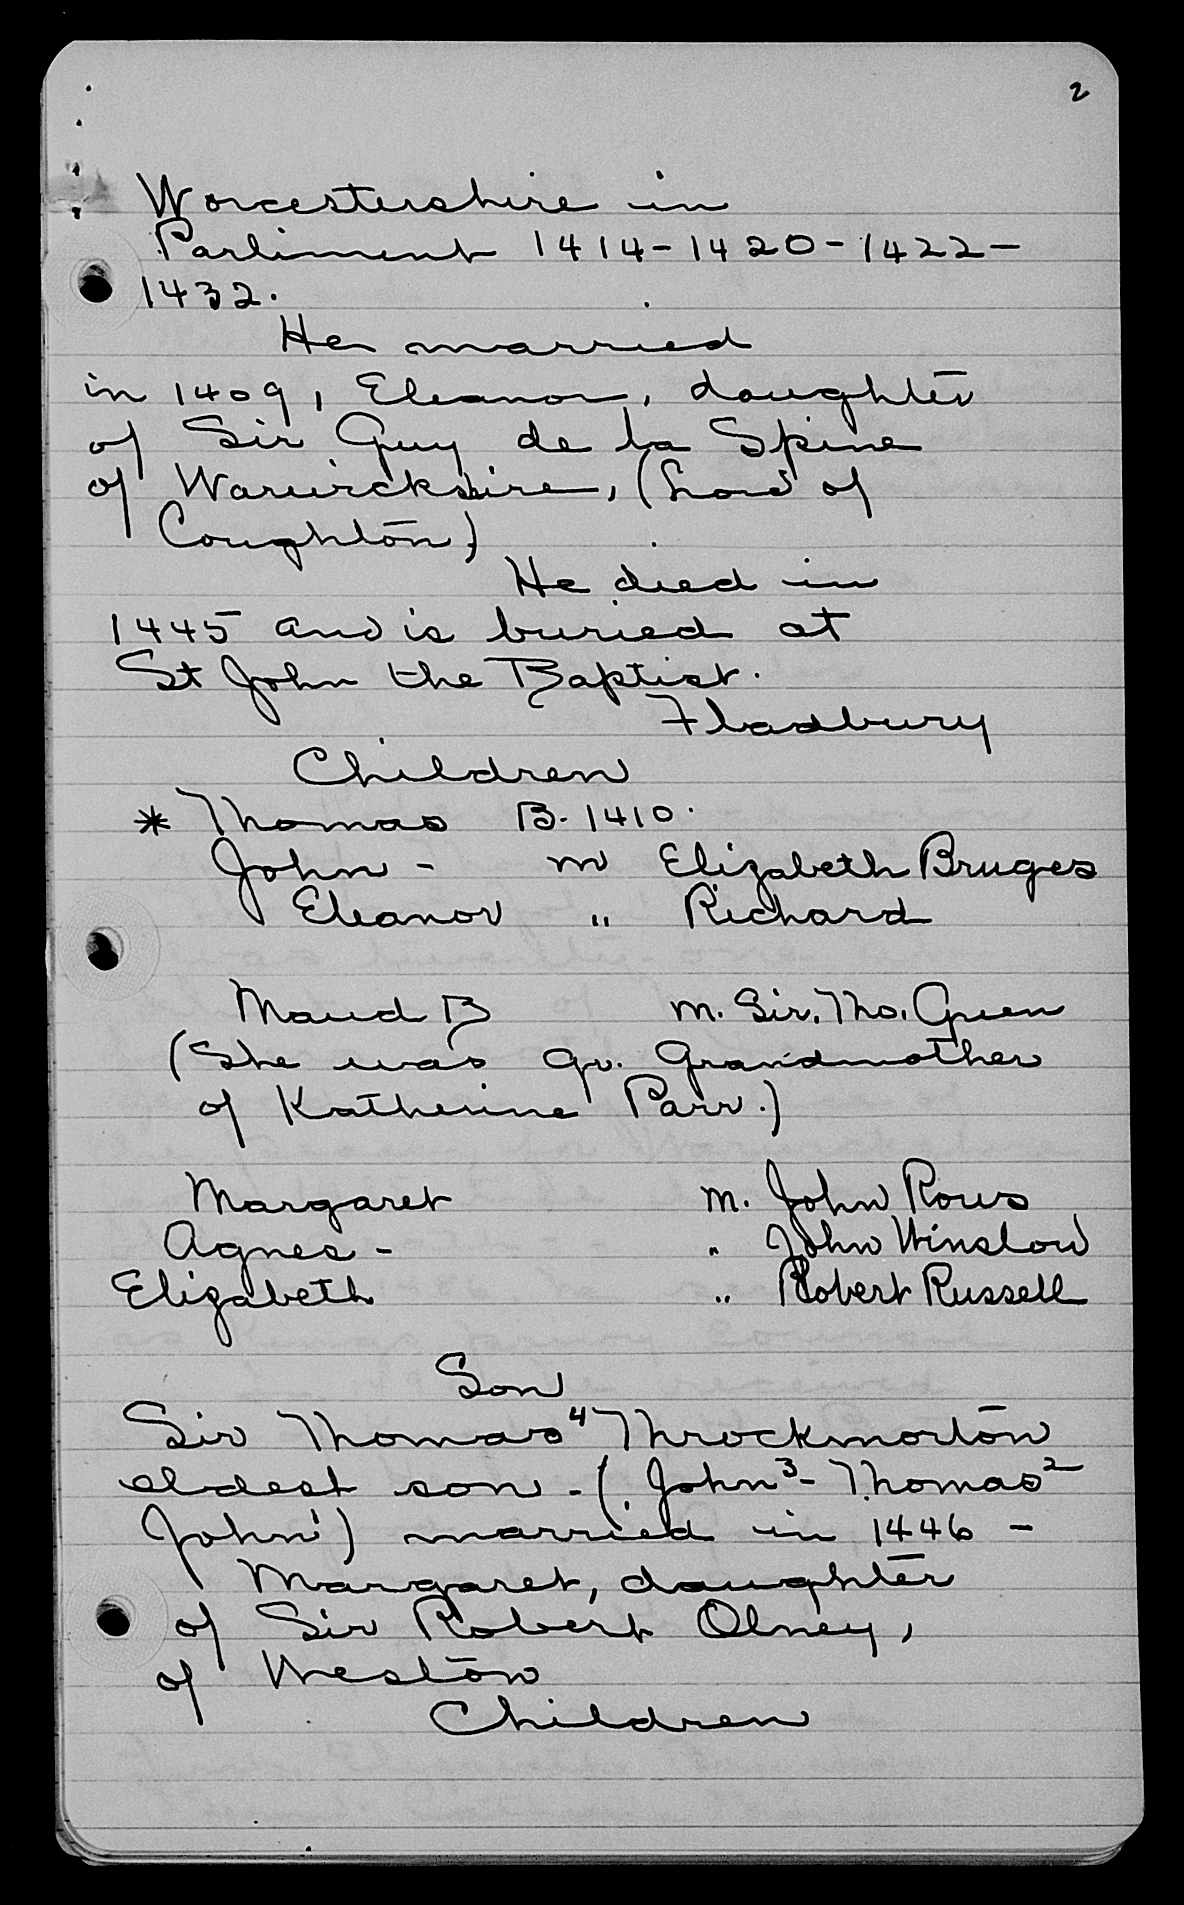 2
Worcestershire in
Parliment 1414-1420-1422-
1432.
He married
in 1409, Eleanor, daughter
of Sir Guy de la Spine
of Warwickshire, (Lord of
Coughton)
He died in
1445 and is buried at
St John the Baptist.
Fladbury
Children
* Thomas B. 1410.
John - m Elizabeth Bruges
Eleanor " Richard
Maud B m. Sir. Tho. Green
(She was gr. Grandmother
of Katherine Parr.)
Margaret m. John Rous
Agnes - " John Winslow
Elizabeth " Robert Russell
Son
Sir Thomas⁴ Throckmorton
eldest son - (John³- Thomas²
John¹) married in 1446 -
Margaret, daughter
of Sir Robert Olney,
of Weston
Children